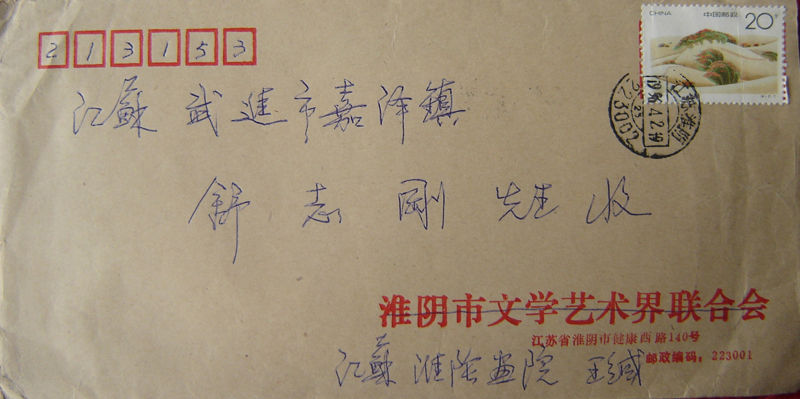 213153
CHINA 中国邮政 20分
江蘇 武進市嘉泽鎮
江苏淮阴
1996.4.2.19
223001
舒志剛 先生 收
淮阴市文学艺术界联合会
江苏省淮阴市健康西路140号
邮政编码：223001
江蘇 淮陰画院 王